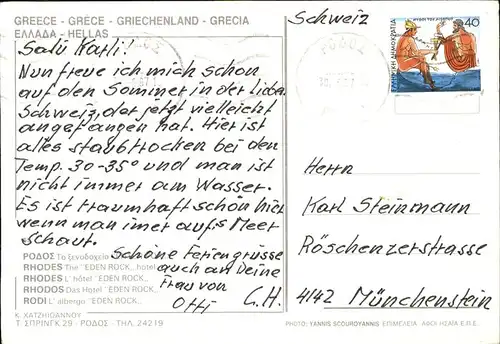 GREECE - GRÈCE - GRIECHENLAND - GRECIA
ΕΛΛΑΔΑ - HELLAS
Salü Karli!
Nun freue ich mich schon
auf den Sommer in der liebe
Schweiz, der jetzt vielleicht
angefangen hat. Hier ist
alles staubtrocken bei den
Temp. 30-35° und man ist
nicht immer am Wasser.
Es ist traumhaft schön hier
wenn man imer auf's Meer
schaut.
Schöne Feriengrüsse
auch an Deine
Frau von
Otti G.H.
ΡΟΔΟΣ Το ξενοδοχείο
RHODES The "EDEN ROCK,, hotel
RHODES L' hôtel "EDEN ROCK,,
RHODOS Das Hotel "EDEN ROCK,,
RODI L' albergo "EDEN ROCK,,
Κ. ΧΑΤΖΗΙΩΑΝΝΟΥ
Τ. ΣΠΡΙΝΓΚ 29 - ΡΟΔΟΣ - ΤΗΛ. 24219
Schweiz
ΡΟΔΟΣ
40
ΕΛΛΗΝΙΚΗ ΔΗΜΟΚΡΑΤΙΑ
Herrn
Karl Steinmann
Röschenzerstrasse
4142 Münchenstein
PHOTO: YANNIS SCOUROYANNIS ΕΠΙΜΕΛΕΙΑ - ΑΦΟΙ ΗΣΑΪΑ Ε.Π.Ε.